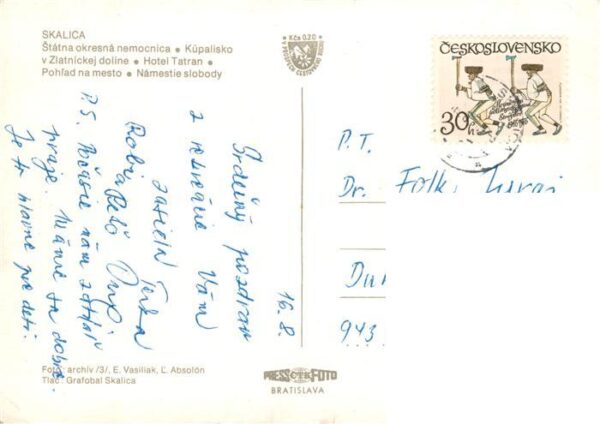 SKALICA
Štátna okresná nemocnica • Kúpalisko
v Zlatníckej doline • Hotel Tatran •
Pohľad na mesto • Námestie slobody
Kčs 0,20
ČESKOSLOVENSKO
30h
P.T.
Dr.
943
Srdečný pozdrav
z rekreácie Vám
16.8.
P.S. Počasie nám zatiaľ
praje. Máme sa dobre.
Je to hlavne pre deti.
Foto: archív /3/, E. Vasiliak, Ľ. Absolón
Tlač: Grafobal Skalica
PRESSČTKFOTO
BRATISLAVA